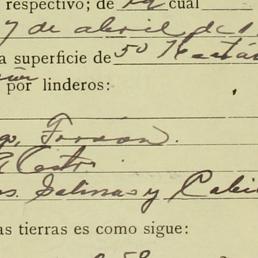 respectivo; de la cual
7 de abril de 1
a superficie de 50 Hectá
por linderos:
Castro.
s. Salinas y Cabi
as tierras es como sigue: